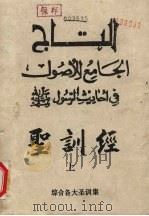 التاج
الجامع للأصول
في أحاديث الرسول ﷺ
聖訓經
綜合各大圣训集